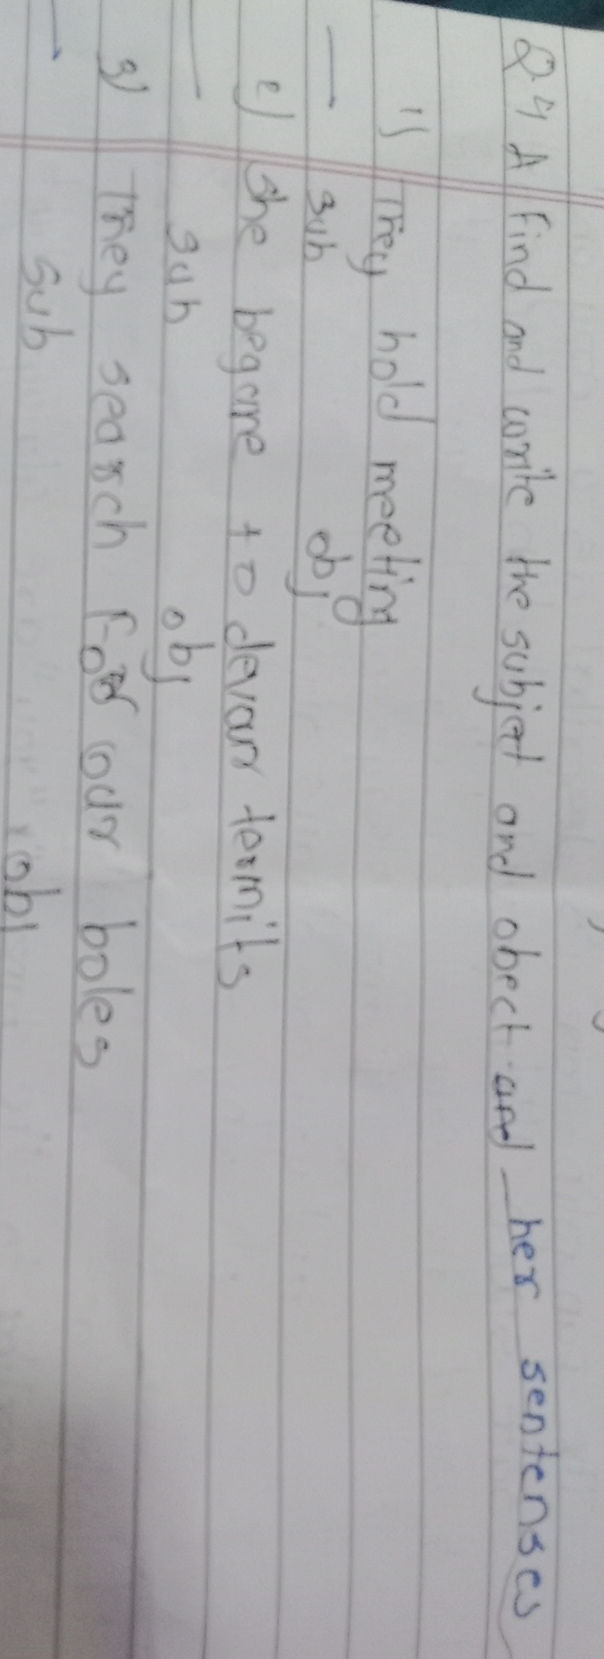 Q4 A find and write the subject and obect and her sentenses
1) They hold meeting
— sub obj
2) She begane to devour termits
— sub obj
3) They search for our boles
— sub obj